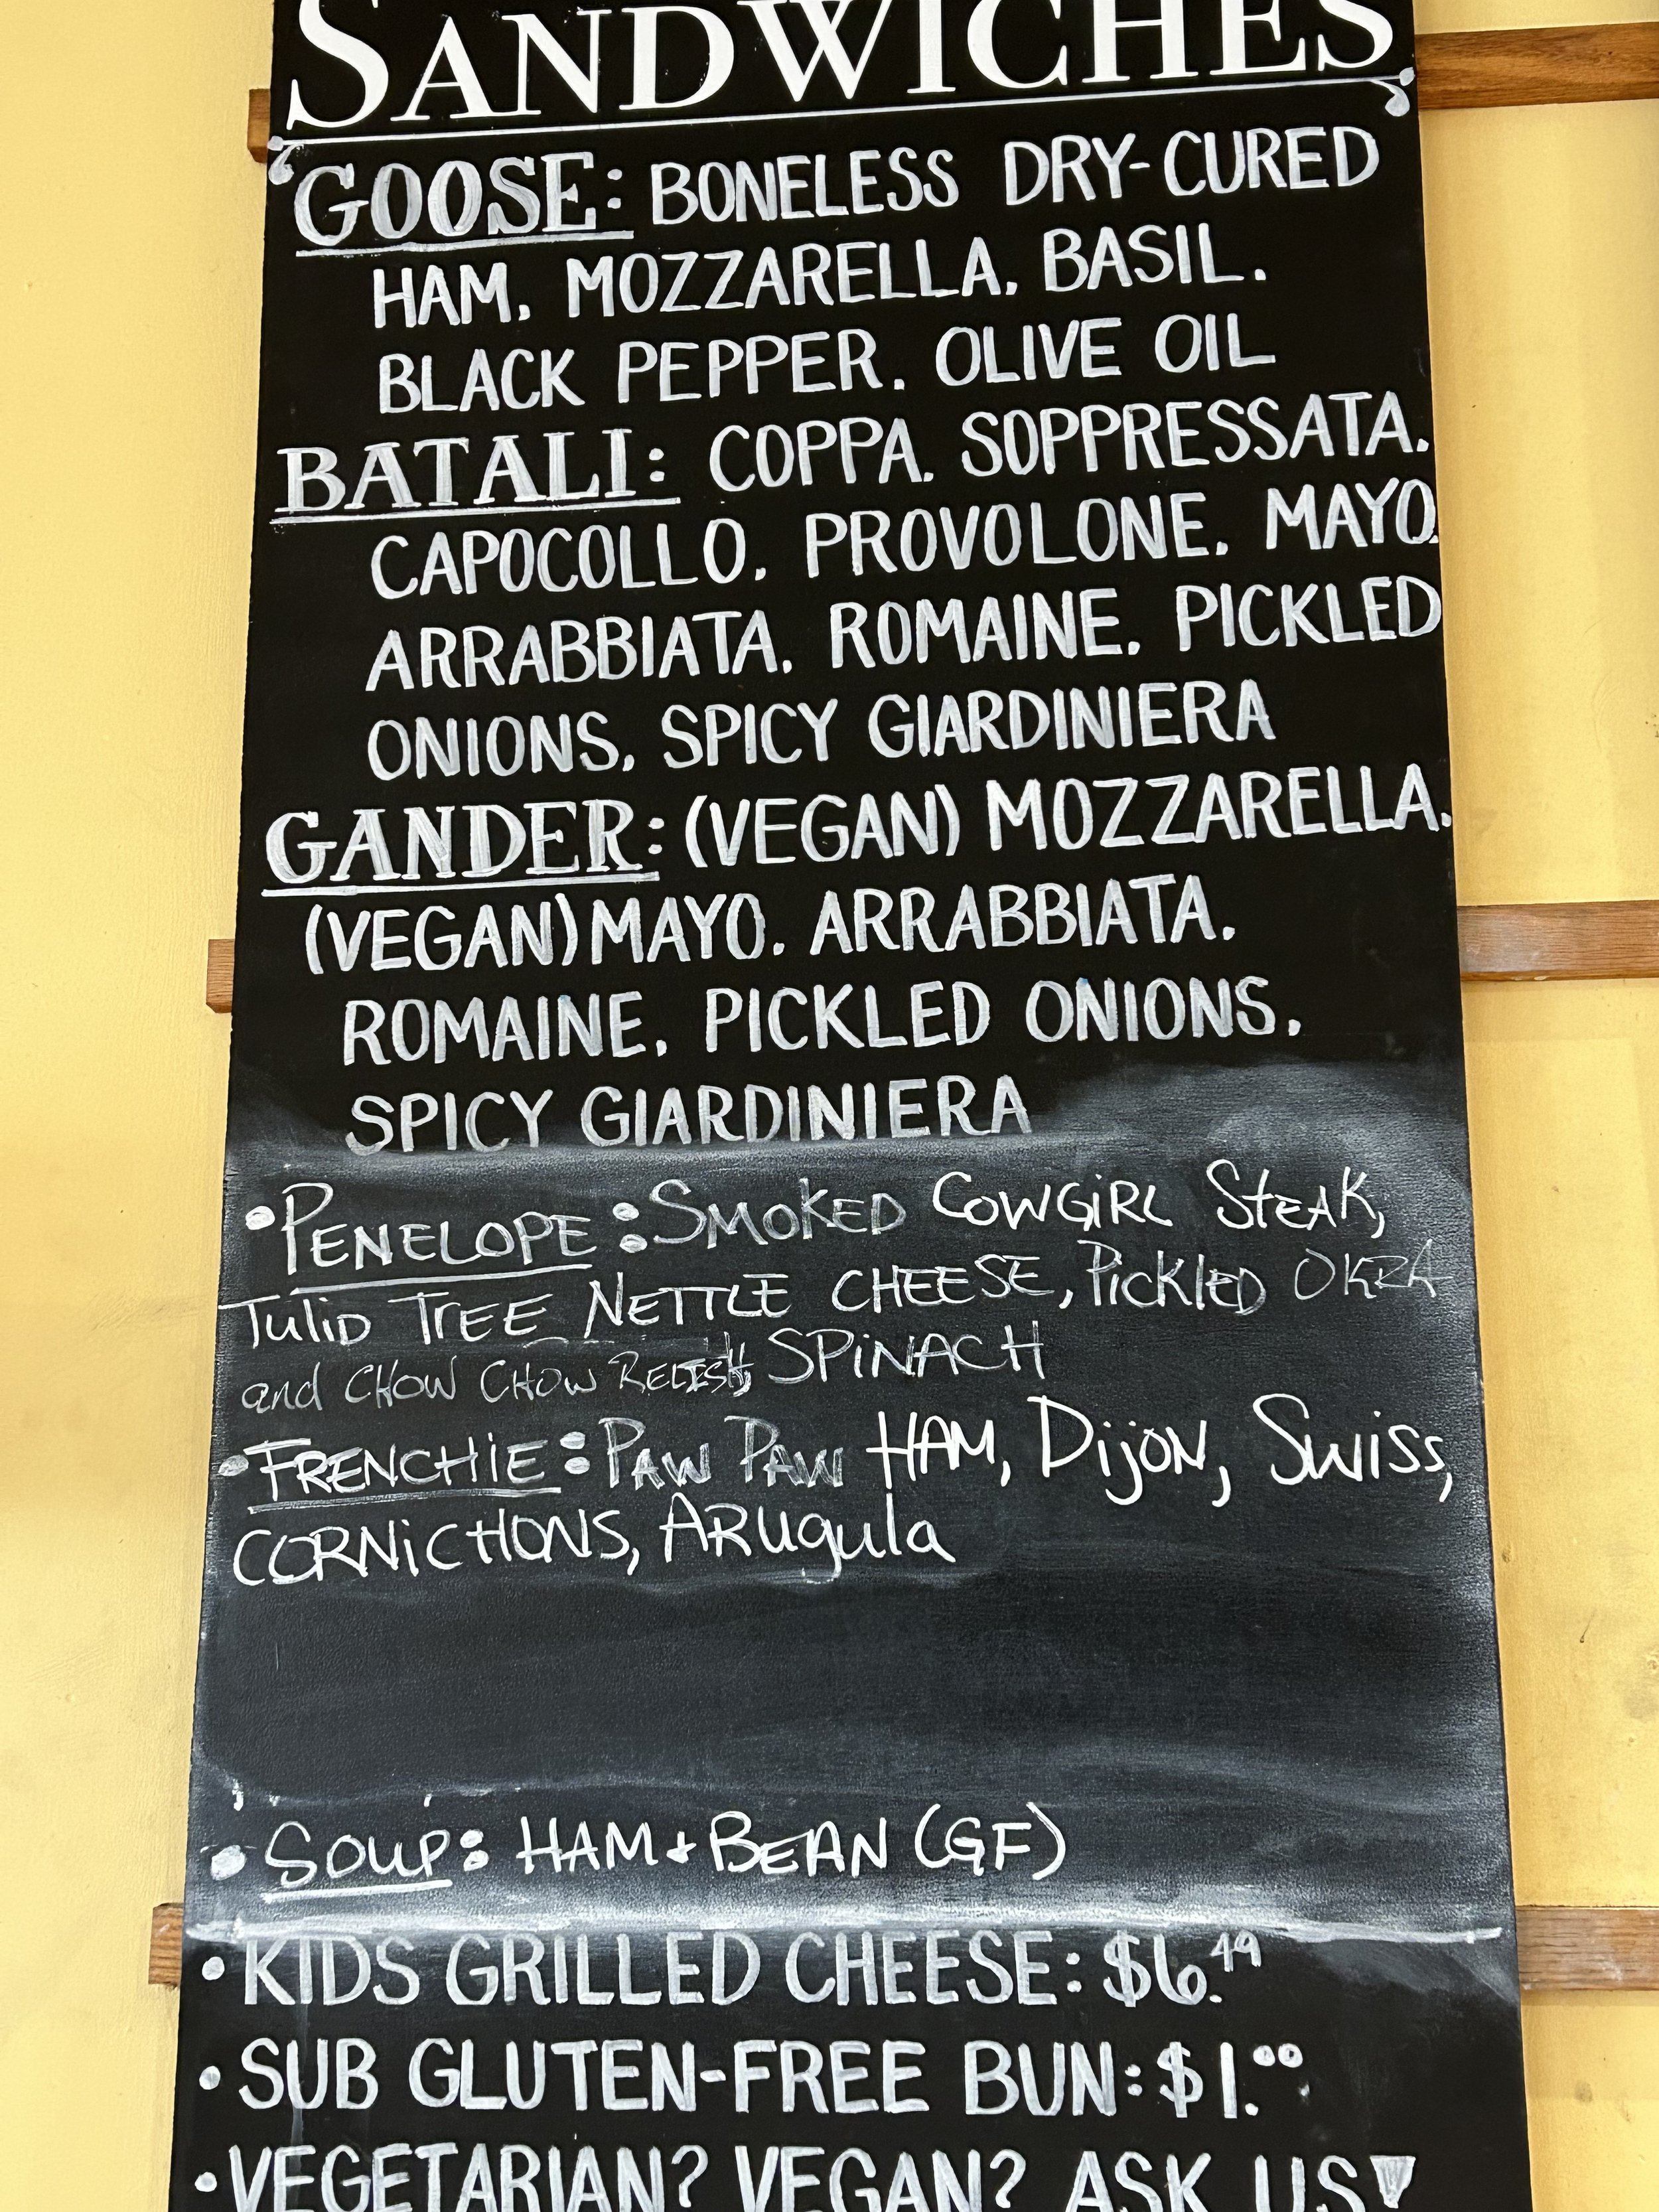 SANDWICHES
GOOSE: BONELESS DRY-CURED
HAM. MOZZARELLA. BASIL.
BLACK PEPPER. OLIVE OIL
BATALI: COPPA. SOPPRESSATA.
CAPOCOLLO. PROVOLONE. MAYO.
ARRABBIATA. ROMAINE. PICKLED
ONIONS. SPICY GIARDINIERA
GANDER: (VEGAN) MOZZARELLA.
(VEGAN) MAYO. ARRABBIATA.
ROMAINE. PICKLED ONIONS.
SPICY GIARDINIERA
• PENELOPE: SMOKED COWGiRL STEAK,
Tulip TREE NETTLE CHEESE, PickLED OKRA
and CHOW CHOW RELISH, SPiNACH
• FRENCHiE: PAW PAW HAM, DijON, SWiss,
CORNiCHONS, ARugula
• Soup: HAM + BEAN (GF)
• KIDS GRILLED CHEESE: $6.49
• SUB GLUTEN-FREE BUN: $1.00
• VEGETARIAN? VEGAN? ASK US!